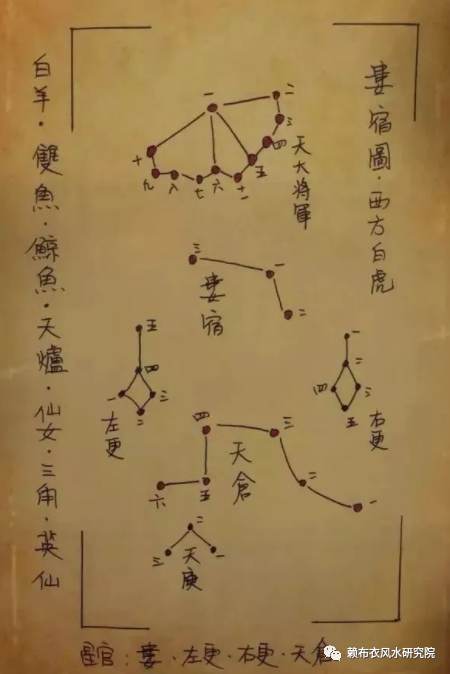 婁宿圖·西方白虎
白羊·雙魚·鯨魚·天爐·仙女·三角·英仙
一
二
三
四
五
十一
六
七
八
九
十
天大将軍
三
一
二
婁宿
五
四
一
三
二
左更
一
二
四
三
五
右更
四
三
二
一
五
六
天倉
二
三
一
天庾
星官：婁·左更·右更·天倉
赖布衣风水研究院